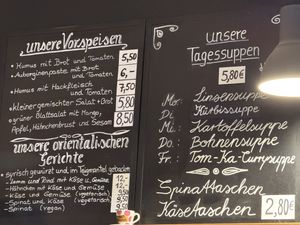 unsere Vorspeisen
• Humus mit Brot und Tomaten 5,50
• Auberginenpaste mit Brot und Tomaten 6,-
• Humus mit Hackfleisch und Tomaten 7,50
• kleiner gemischter Salat + Brot 5,80
• grüner Blattsalat mit Mango, Apfel, Hähnchenbrust und Sesam 8,50
unsere orientalischen
Gerichte
Byrisch gewürzt und im Teigmantel gebacken
- Lamm und Rind mit Käse u. Gemüse 12,-
- Hähnchen mit Käse und Gemüse
- Käse und Gemüse (vegetarisch)
- Spinat und Käse
- Spinat (vegan)
unsere
Tagessuppen
5,80€
Mo: Linsensuppe
Di: Kürbissuppe
Mi: Kartoffelsuppe
Do: Bohnensuppe
Fr: Tom-Ka-Currysuppe
Spinattaschen
Käsetaschen 2,80€